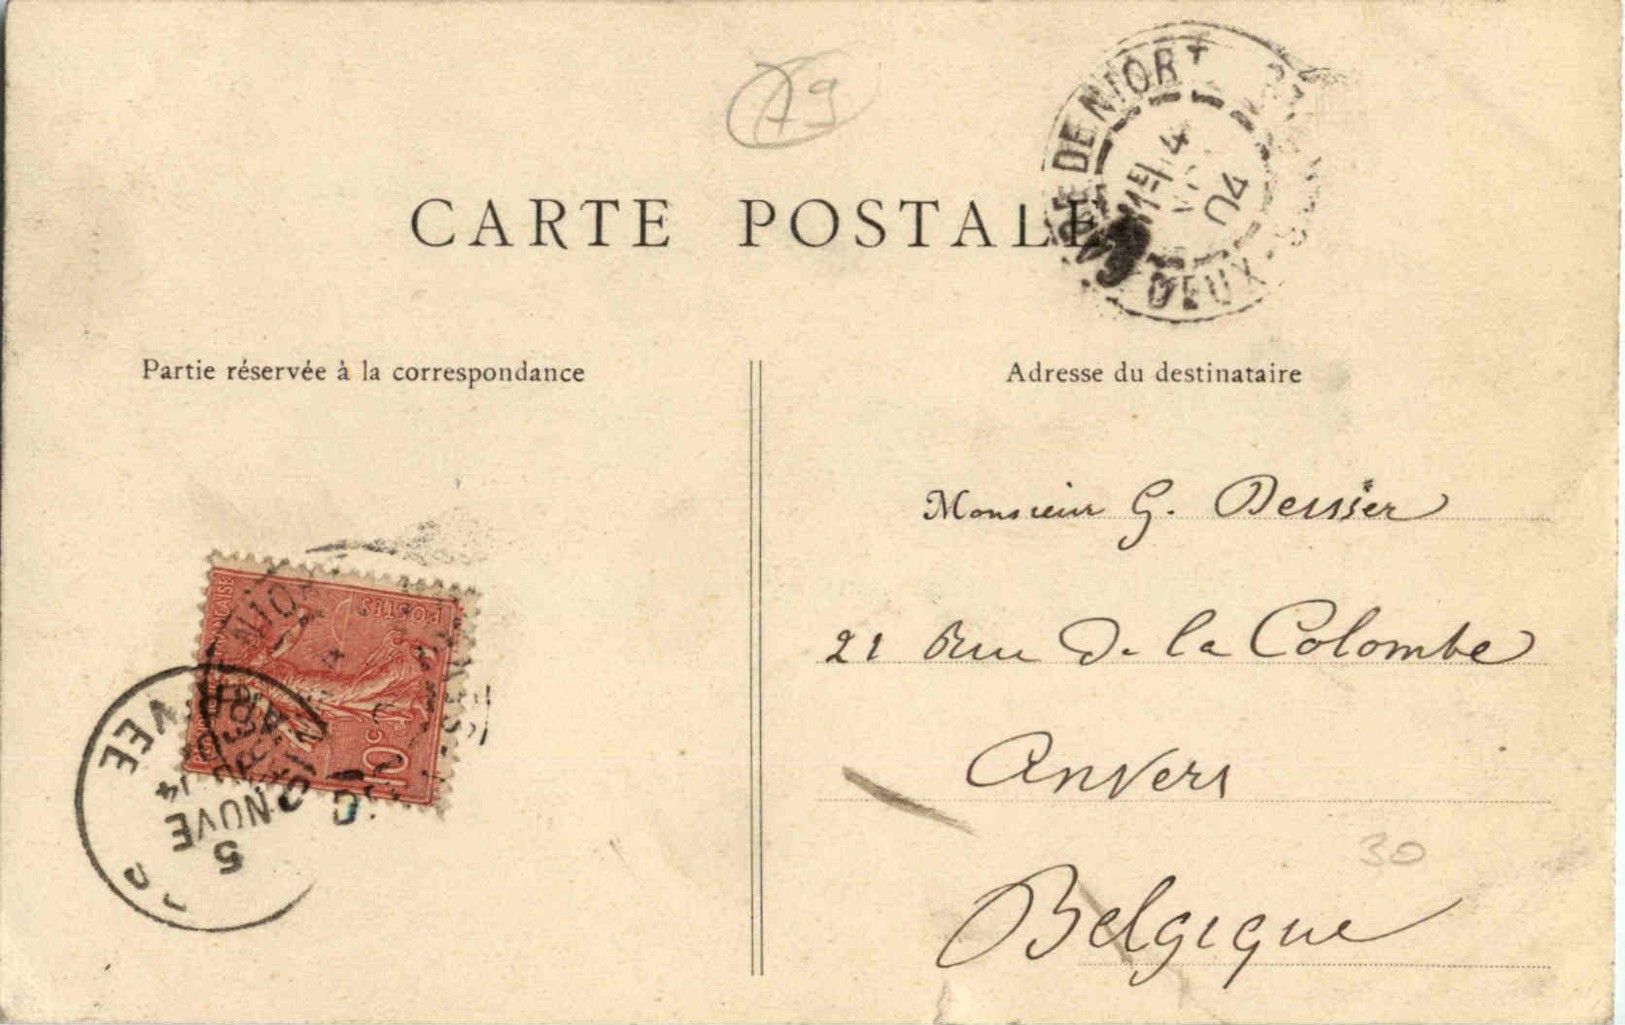 79
CARTE POSTALE
DE NIORT
1RE 4
04
DEUX
Partie réservée à la correspondance
Adresse du destinataire
Monsieur G. Dessier
21 Rue de la Colombe
Anvers
30
Belgique
POSTES
10 c
NIORT
5
NOVE
14